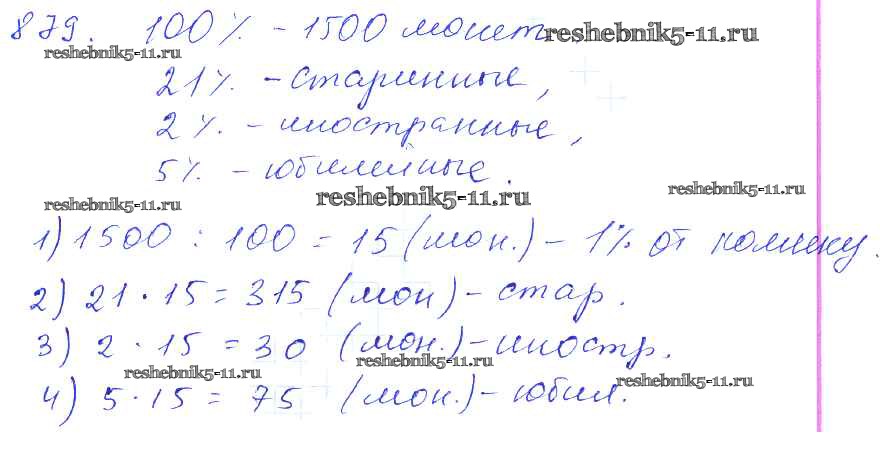 879. 100% - 1500 монет, reshebnik5-11.ru
reshebnik5-11.ru
21% - старинные,
2% - иностранные,
5% - юбилейные.
reshebnik5-11.ru
reshebnik5-11.ru reshebnik5-11.ru
1) 1500 : 100 = 15 (мон.) - 1% от
2) 21 · 15 = 315 (мон) - стар.
3) 2 · 15 = 30 (мон.) - иностр.
reshebnik5-11.ru reshebnik5-11.ru
reshebnik5-11.ru
4) 5 · 15 = 75 (мон.) - юбил.